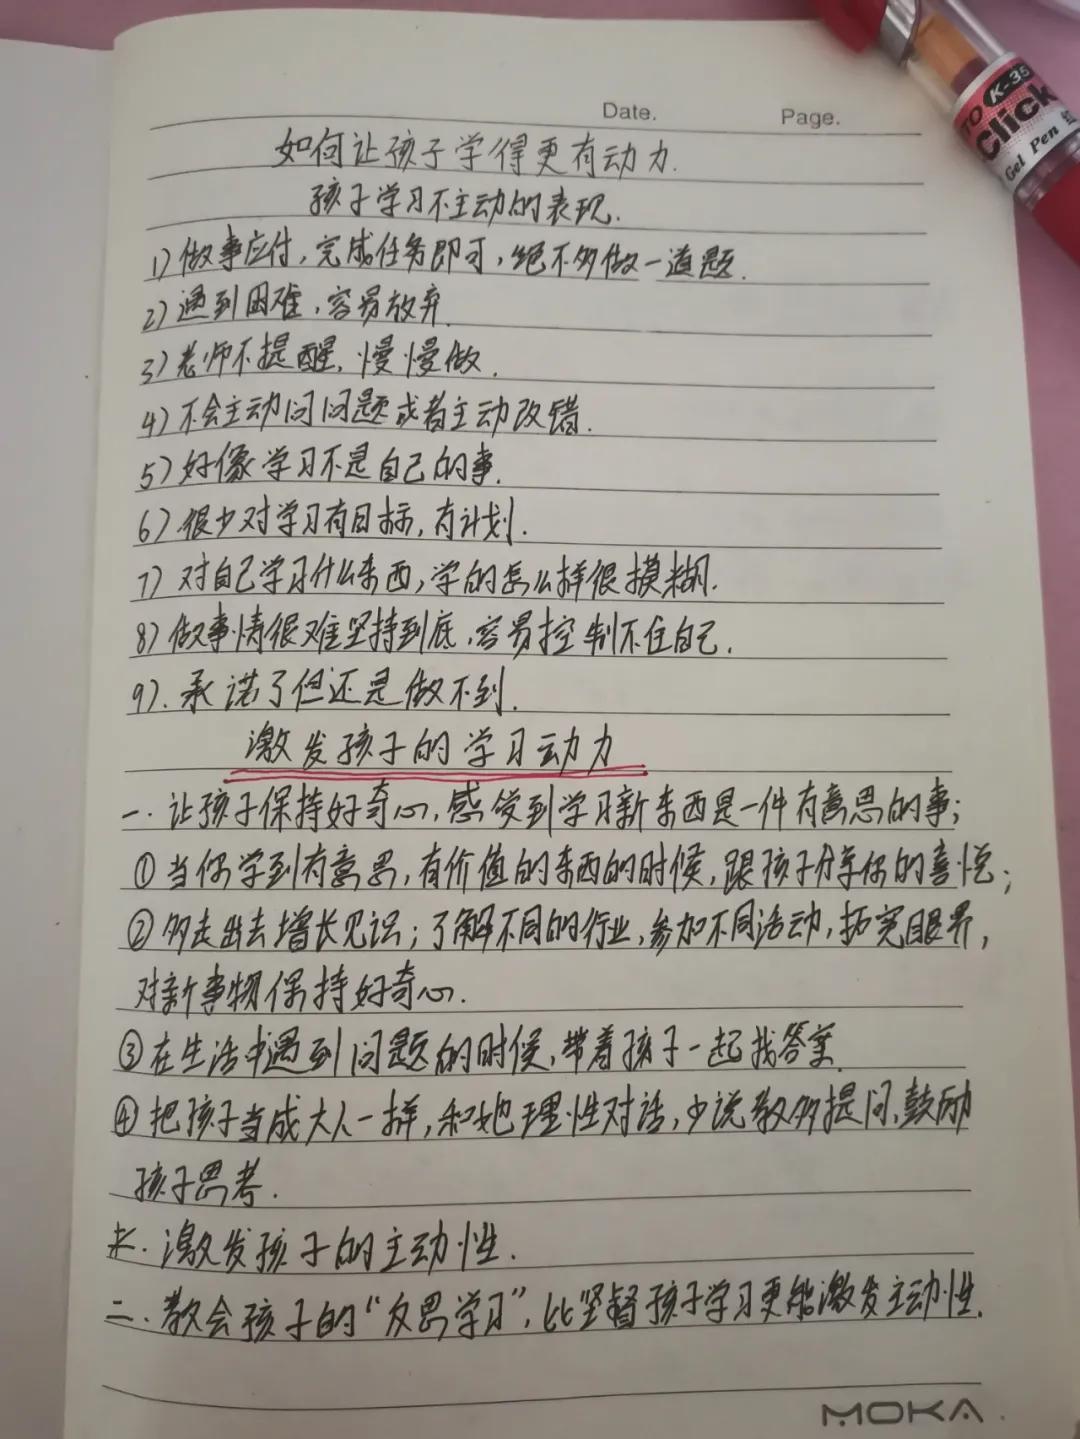 Date.
Page.
如何让孩子学得更有动力.
孩子学习不主动的表现.
1)做事应付,完成任务即可,绝不多做一道题.
2)遇到困难,容易放弃.
3)老师不提醒,慢慢做.
4)不会主动问问题或者主动改错.
5)好像学习不是自己的事.
6)很少对学习有目标,有计划.
7)对自己学习什么东西,学的怎么样很摸糊.
8)做事情很难坚持到底,容易控制不住自己.
9).承诺了但还是做不到.
激发孩子的学习动力
一.让孩子保持好奇心,感受到学习新东西是一件有意思的事;
①当你学到有意思,有价值的东西的时候,跟孩子分享你的喜悦;
②多走出去增长见识;了解不同的行业,参加不同活动,拓宽眼界,
对新事物保持好奇心.
③在生活中遇到问题的时候,带着孩子一起找答案.
④把孩子当成大人一样,和她理性对话,少说教多提问,鼓励
孩子思考.
激发孩子的主动性.
二.教会孩子的“反思学习”,比坚督孩子学习更能激发主动性.
MOKA
K-35
Click
Gel Pen